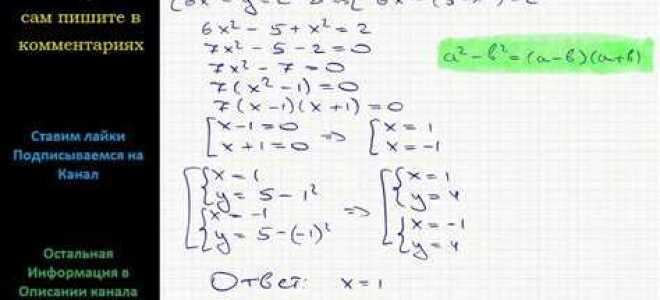 сам пишите в
комментариях
Ставим лайки
Подписываемся на
Канал
Остальная
Информация в
Описании канала
6x² - 5 + x² = 2
7x² - 5 - 2 = 0
7x² - 7 = 0
7(x² - 1) = 0
7(x - 1)(x + 1) = 0
[x - 1 = 0 => [x = 1
[x + 1 = 0 [x = -1
{x = 1 {x = 1
{y = 5 - 1² {y = 4
=>
{x = -1 {x = -1
{y = 5 - (-1)² {y = 4
Ответ: x = 1
a² - b² = (a - b)(a + b)